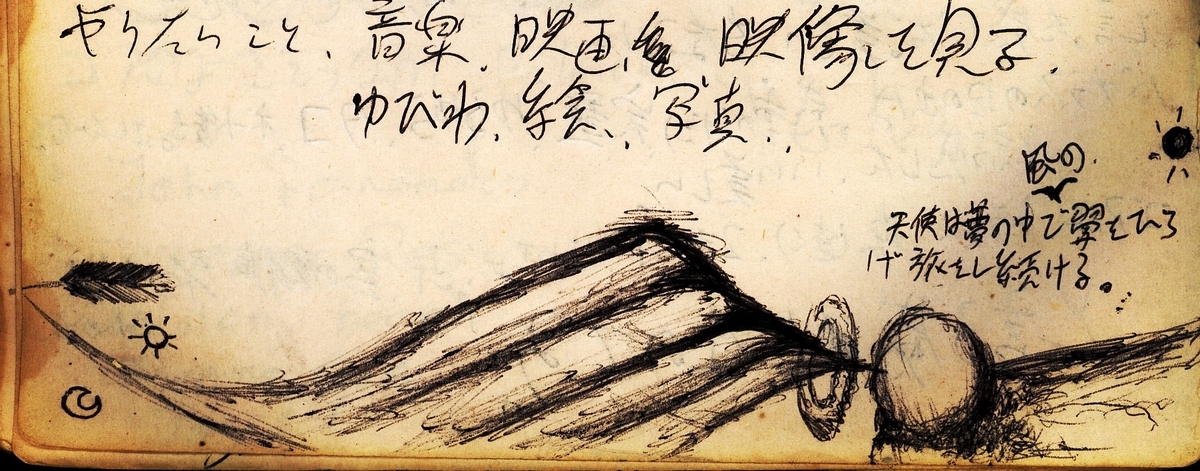 やりたいこと、音楽、映画、映像して見る、
ゆびわ、絵、写真、、
風の
天使は夢の中で翼をひろ
げ旅をし続ける。